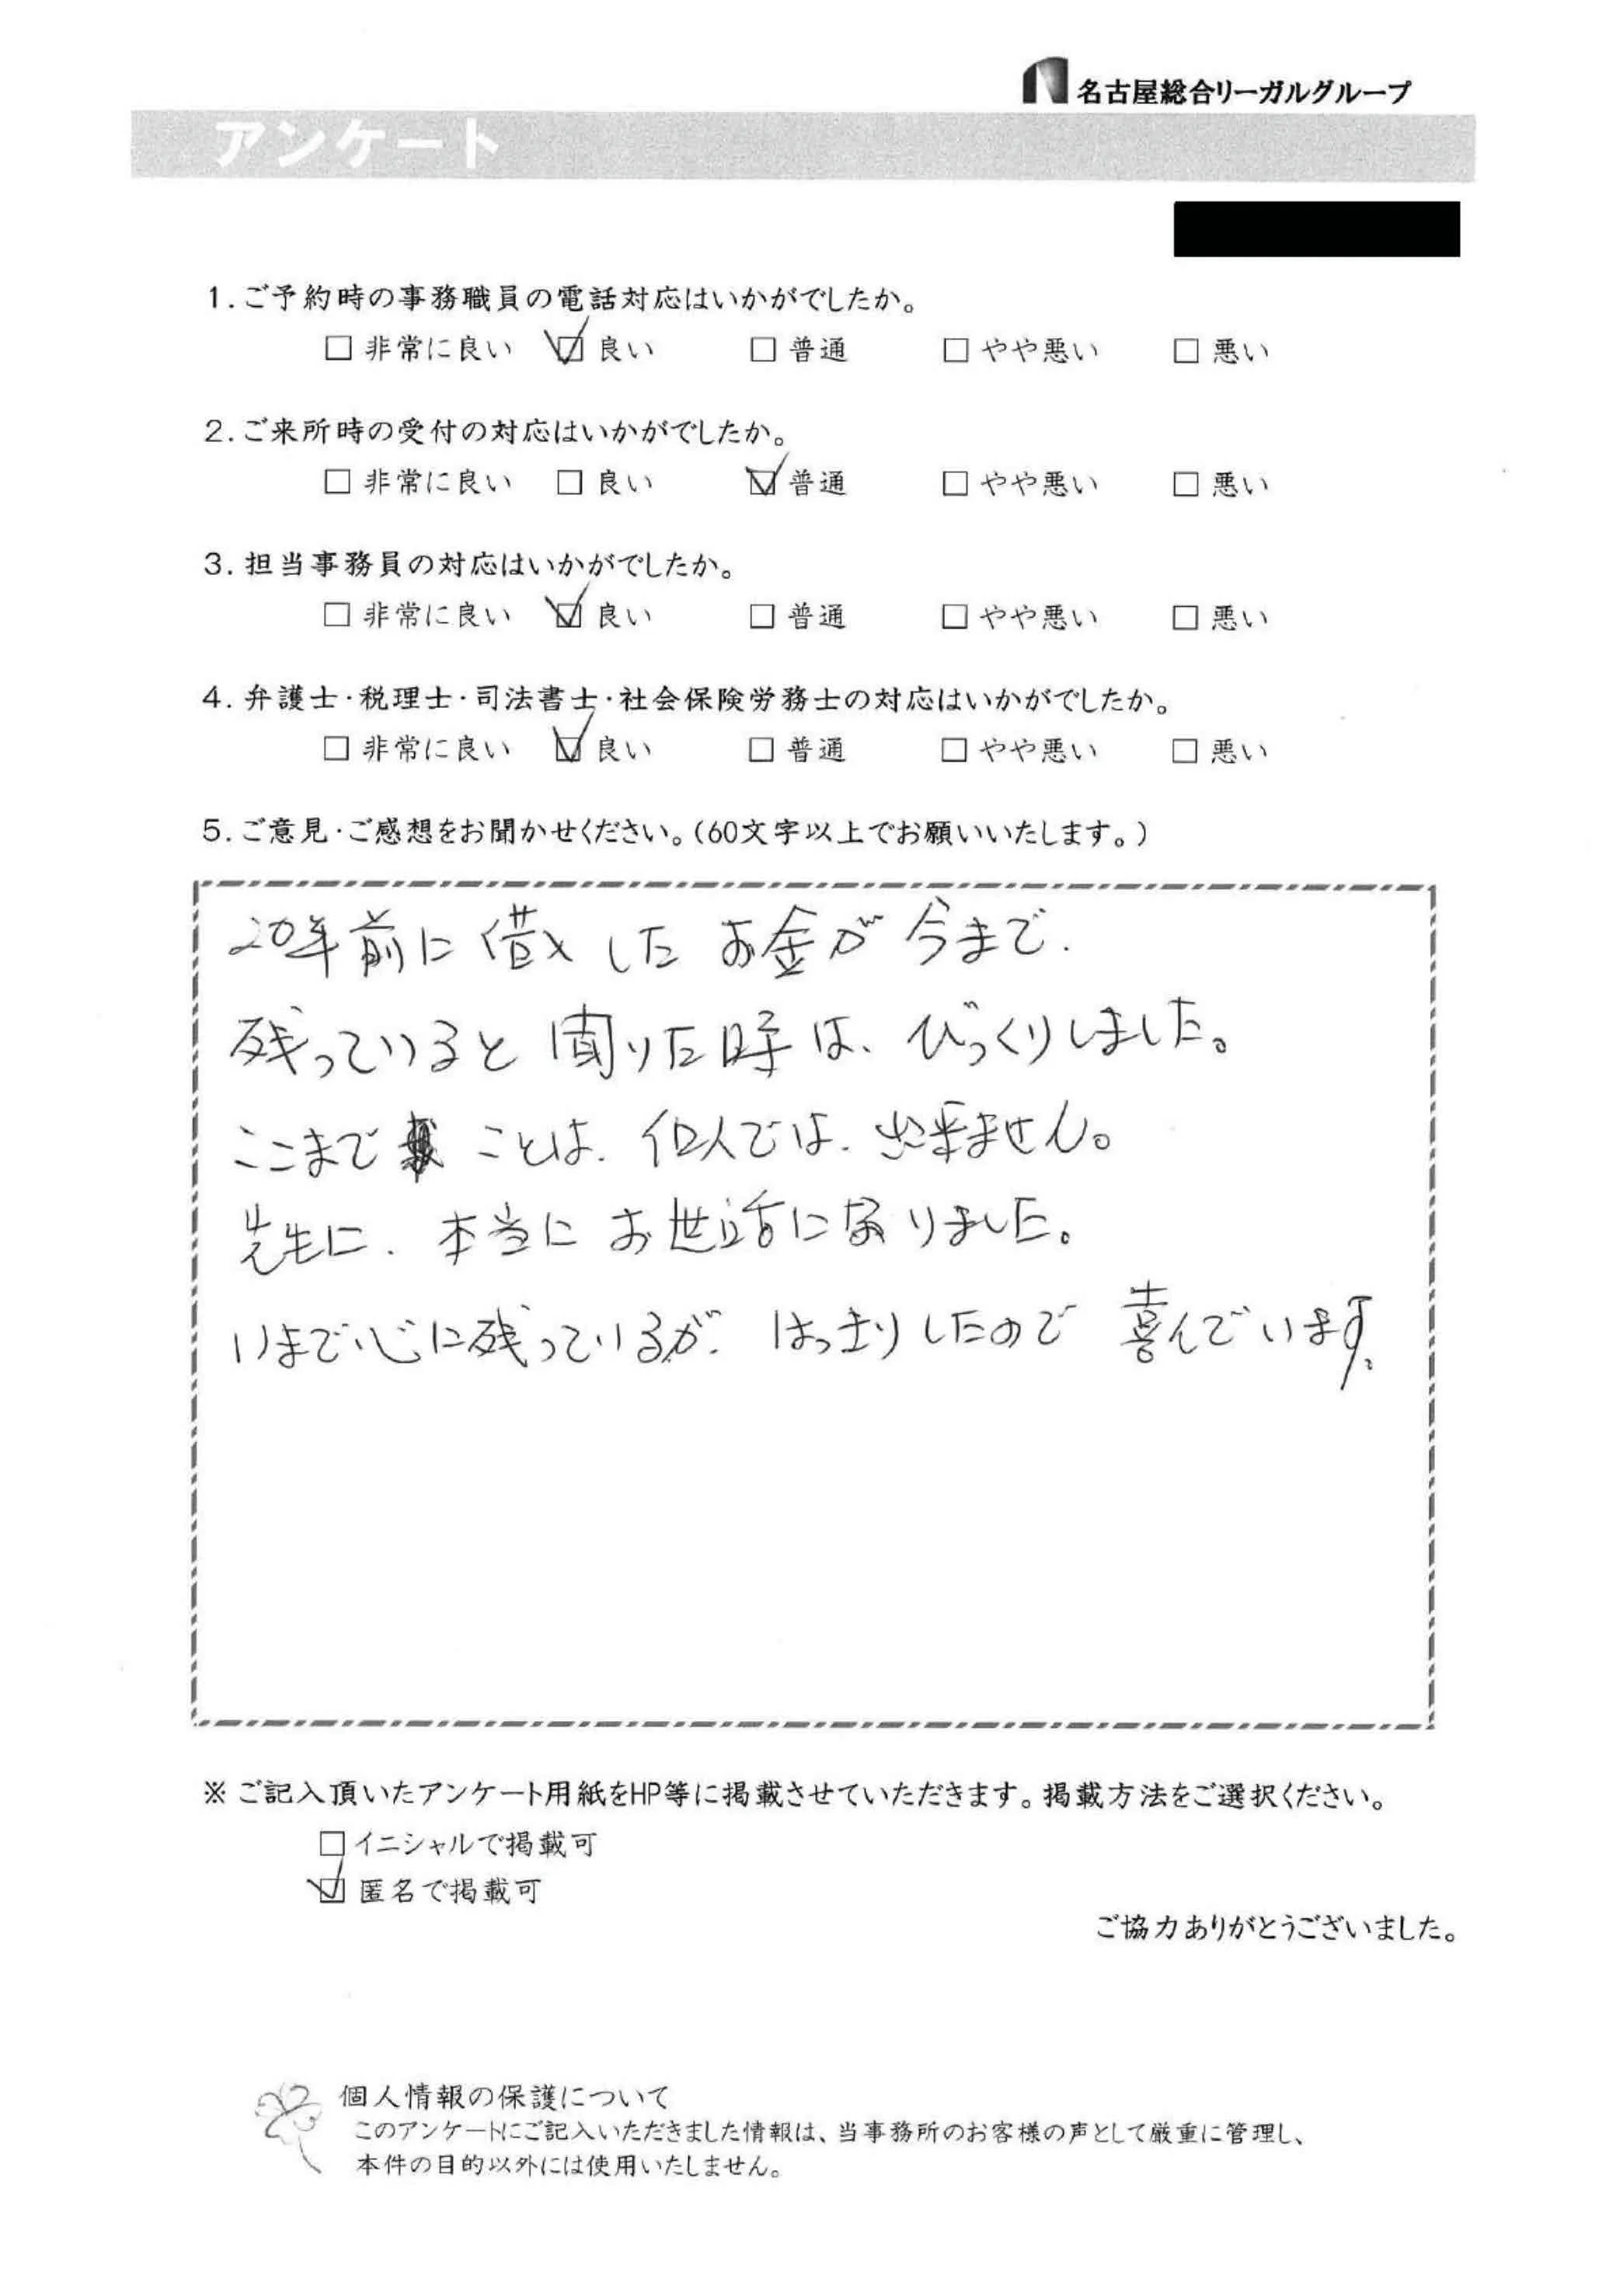 名古屋総合リーガルグループ
アンケート
1.ご予約時の事務職員の電話対応はいかがでしたか。
□ 非常に良い ☑ 良い □ 普通 □ やや悪い □ 悪い
2.ご来所時の受付の対応はいかがでしたか。
□ 非常に良い □ 良い ☑ 普通 □ やや悪い □ 悪い
3.担当事務員の対応はいかがでしたか。
□ 非常に良い ☑ 良い □ 普通 □ やや悪い □ 悪い
4.弁護士・税理士・司法書士・社会保険労務士の対応はいかがでしたか。
□ 非常に良い ☑ 良い □ 普通 □ やや悪い □ 悪い
5.ご意見・ご感想をお聞かせください。(60文字以上でお願いいたします。)
20年前に借入したお金が今まで.
残っていると聞いた時は、びっくりしました。
ここまで ことは、個人では、出来ません。
先生に、本当にお世話になりました。
いまで心に残っているが、はっきりしたので喜んでいます。
※ご記入頂いたアンケート用紙をHP等に掲載させていただきます。掲載方法をご選択ください。
□イニシャルで掲載可
☑匿名で掲載可
ご協力ありがとうございました。
個人情報の保護について
このアンケートにご記入いただきました情報は、当事務所のお客様の声として厳重に管理し、
本件の目的以外には使用いたしません。